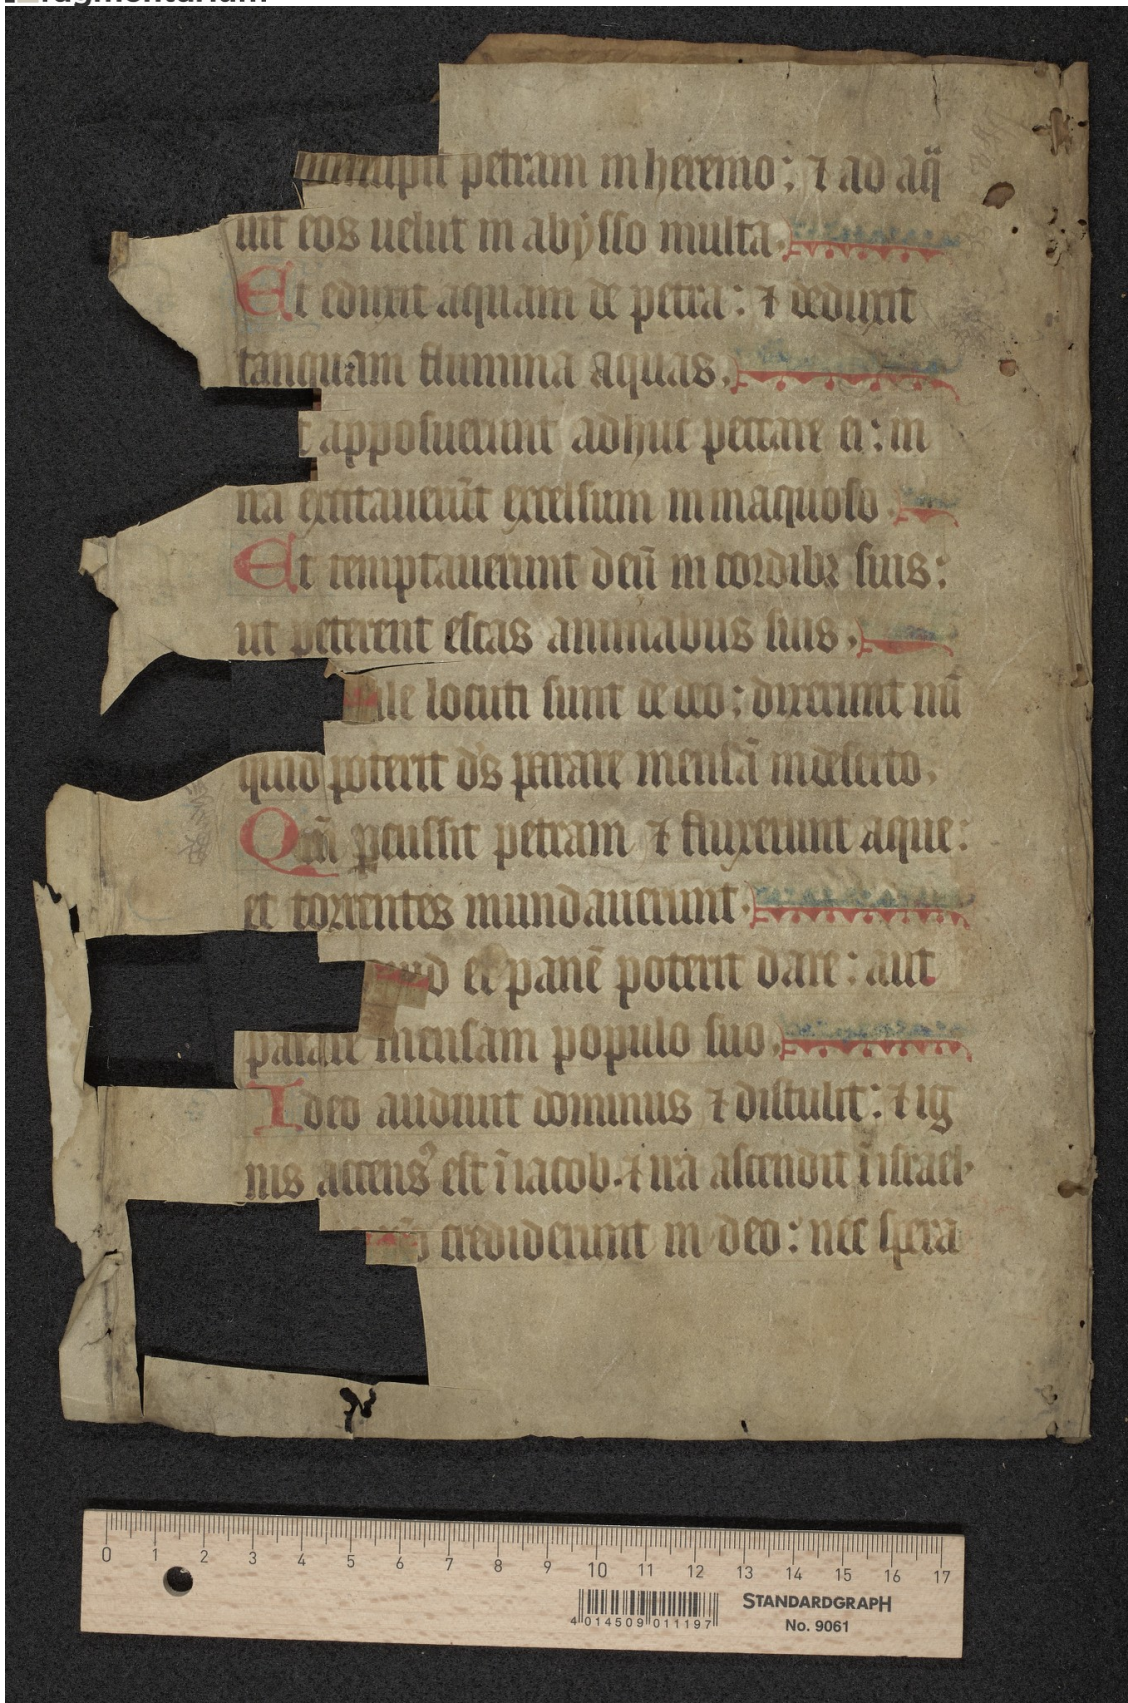 petram in heremo: ⁊ ad aq̈
uit eos uelut in abysso multa.
Et eduxit aquam de petra: ⁊ deduxit
tanquam flumina aquas.
t apposuerunt adhuc peccare ei: in
ira excitauerūt excelsum in inaquoso.
Et temptauerunt deū in cordibꝫ suis:
ut peterent escas animabus suis.
ale locuti sunt de deo: dixerunt nū
quid poterit d̄s parare mensā in deserto.
Qm̄ ꝑcussit petram ⁊ fluxerunt aque:
et torrentes inundauerunt.
uid et panē poterit dare: aut
parare mensam populo suo.
Ideo audiuit dominus ⁊ distulit: ⁊ ig
nis accensꝰ est ī iacob. ⁊ ira ascendit ī israel.
crediderunt in deo: nec spera
0 1 2 3 4 5 6 7 8 9 10 11 12 13 14 15 16 17
4 014509 011197
STANDARDGRAPH
No. 9061